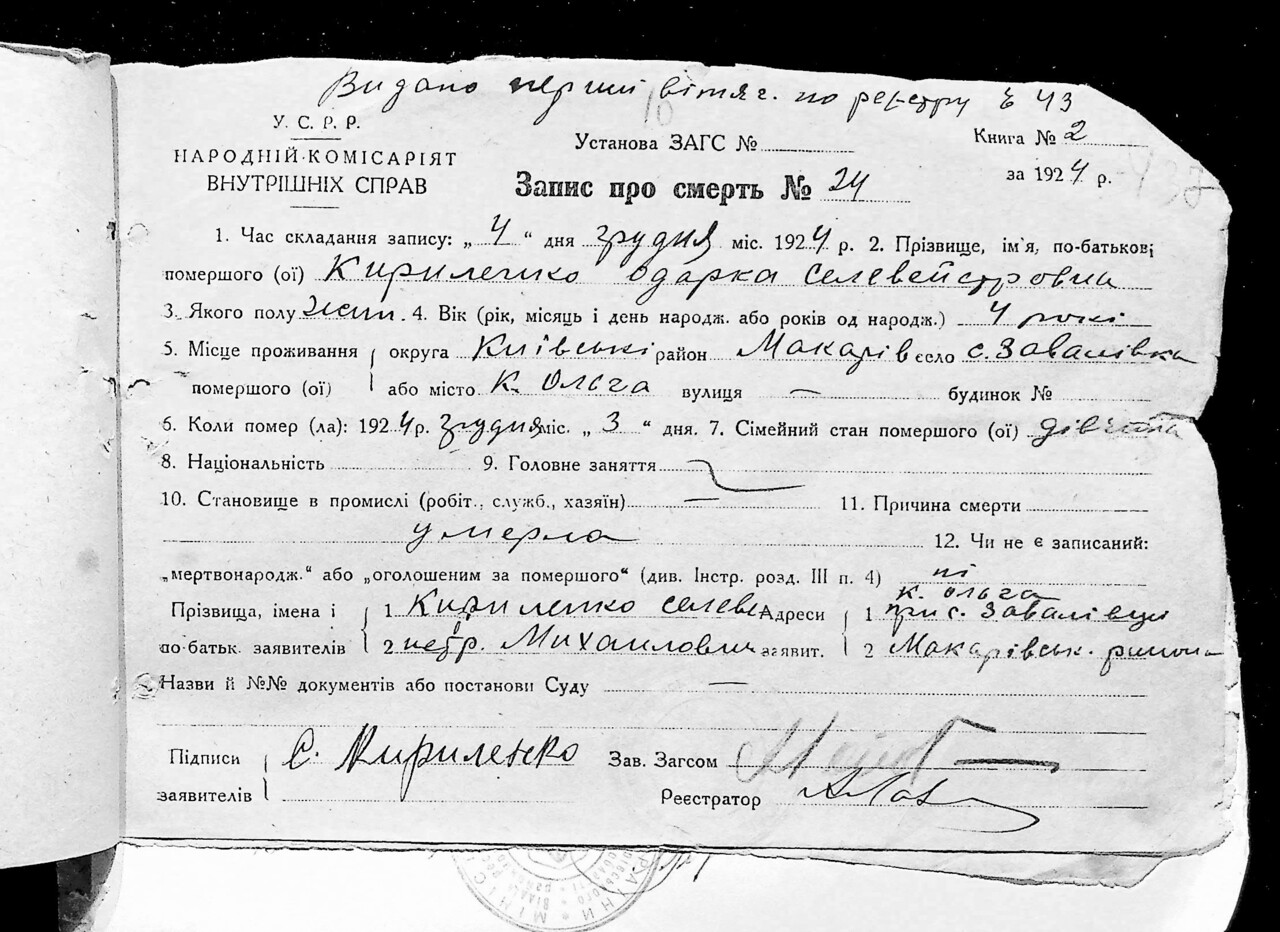 Видано перший витяг. по реєстру № 43
У. С. Р. Р.
НАРОДНІЙ КОМІСАРІЯТ
ВНУТРІШНІХ СПРАВ
Установа ЗАГС №
Запис про смерть № 24
Книга № 2
за 1924 р.
1. Час складання запису: „ 4 “ дня грудня міс. 1924 р. 2. Прізвище, ім'я, по-батькові
помершого (ої) Кириленко Одарка Селевейстровна
3. Якого полу жін. 4. Вік (рік, місяць і день народж. або років од народж.) 4 рокі
5. Місце проживання округа Киівські район Макарів село с. Завалівка
помершого (ої) або місто К. Ольга вулиця — будинок №
6. Коли помер (ла): 1924 р. грудня міс. „ 3 “ дня. 7. Сімейний стан помершого (ої) дівчина
8. Національність 9. Головне заняття
10. Становище в промислі (робіт., служб., хазяїн) — 11. Причина смерти
умерла 12. Чи не є записаний:
„мертвонародж.“ або „оголошеним за помершого“ (див. Інстр. розд. III п. 4) ні
к. Ольга
Прізвища, імена і 1 Кириленко Селеве Адреси 1 при с. Завалівці
по батьк. заявителів 2 Михаилович заявит. 2 Макарівськ. района
Назви й №№ документів або постанови Суду —
Підписи С. Кириленко Зав. Загсом
заявителів Реєстратор